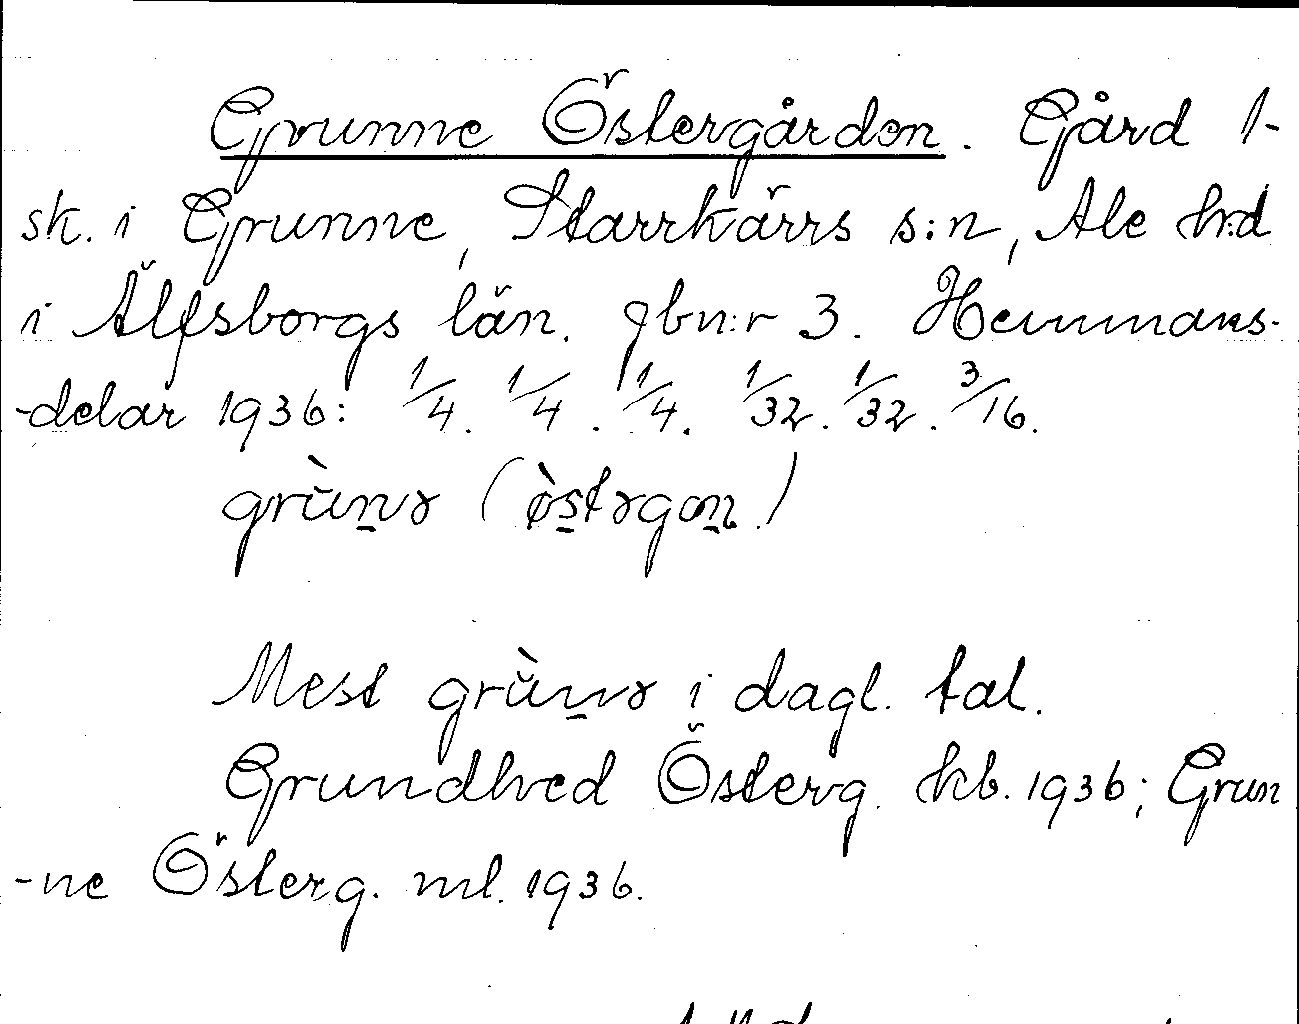 Grunne Östergården. Gård 1-
sk. i Grunne, Starrkärrs s:n, Ale hrd
i Älfsborgs län. Jbn:r 3. Hemmans-
-delar 1936: 1/4. 1/4. 1/4. 1/32. 1/32. 3/16.
grùnə (ø̀stəgɷn.)
Mest grùnə i dagl. tal.
Grundhved Österg. kb. 1936; Grun
-ne Österg. ml. 1936.